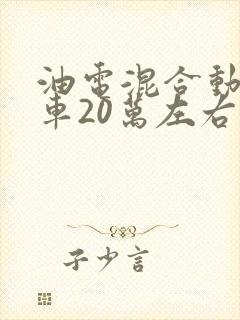 油電混合動
車20萬左右
子少言